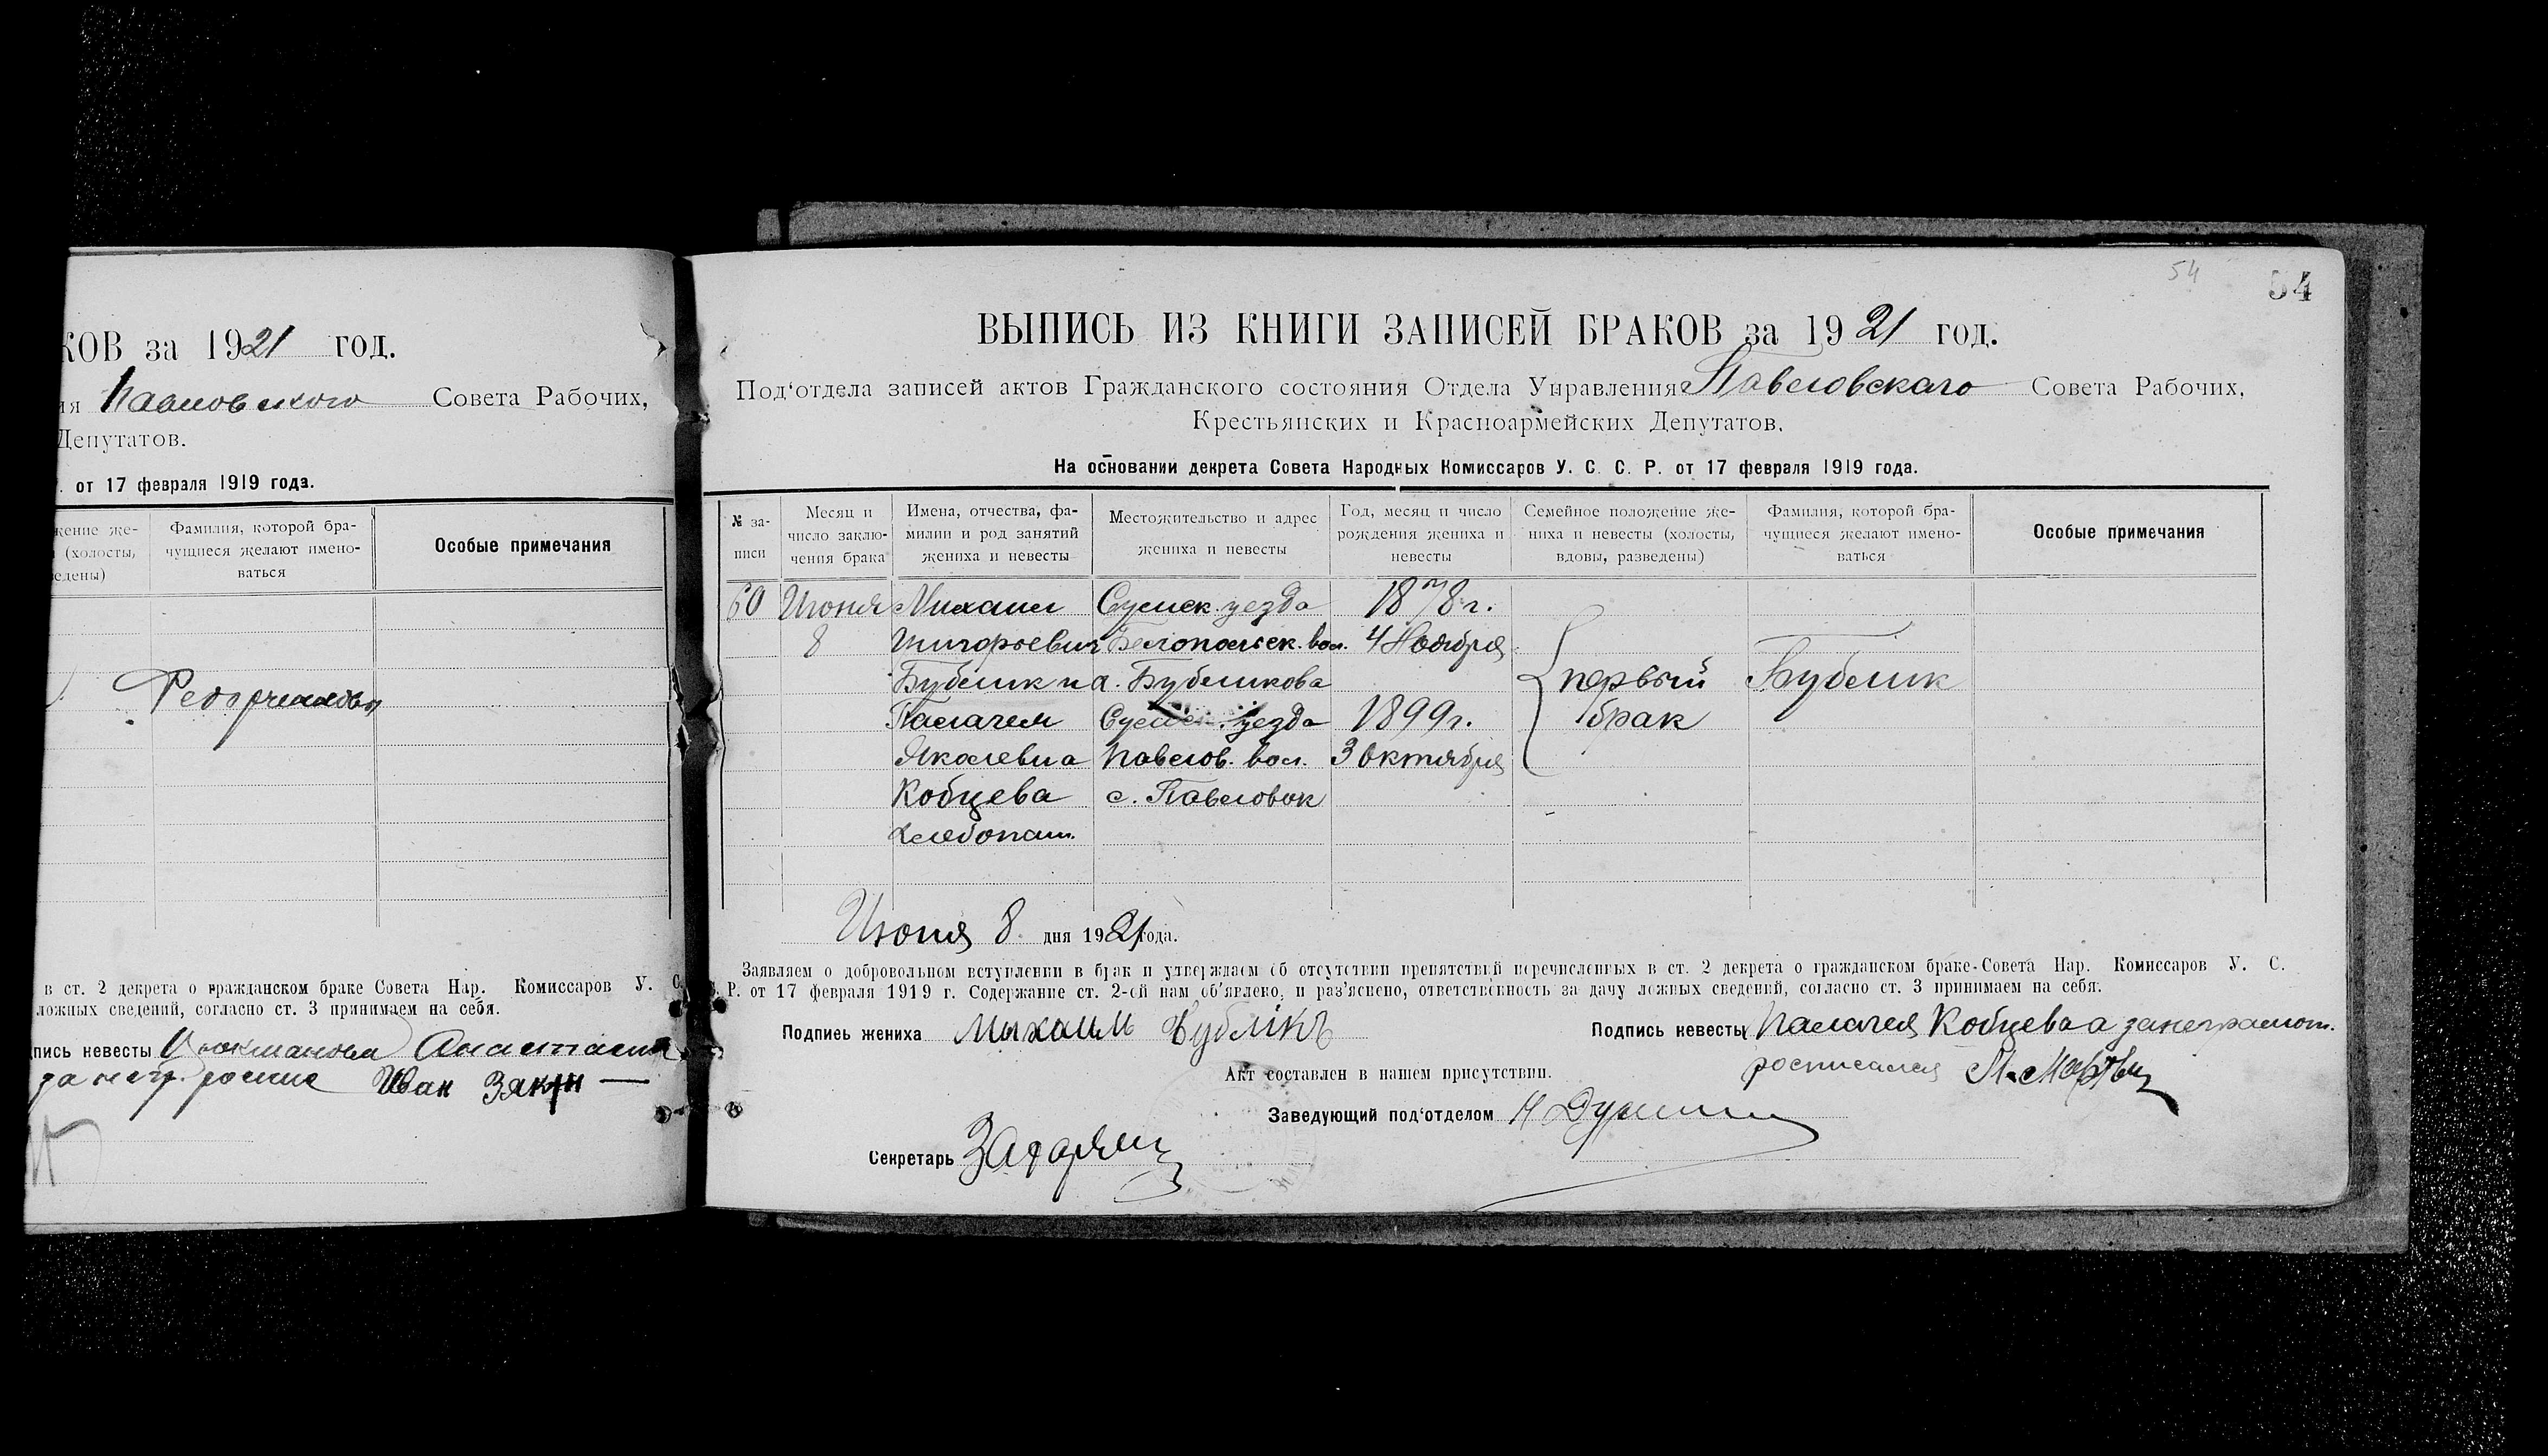 КОВ за 1921 год.
ия Павловского Совета Рабочих,
Депутатов.
. от 17 февраля 1919 года.
жение же-
(холосты,
едены)
Фамилия, которой бра-
чущиеся желают имено-
ваться
Особые примечания
в ст. 2 декрета о гражданском браке Совета Нар. Комиссаров У. С.
ложных сведений, согласно ст. 3 принимаем на себя.
пись невесты Анастасия
за негр. Иван
54
54
ВЫПИСЬ ИЗ КНИГИ ЗАПИСЕЙ БРАКОВ за 1921 год.
Под‘отдела записей актов Гражданского состояния Отдела Управления Павловскаго Совета Рабочих,
Крестьянских и Красноармейских Депутатов.
На основании декрета Совета Народных Комиссаров У. С. С. Р. от 17 февраля 1919 года.
№ за-
писи
Месяц и
число заклю-
чения брака
Имена, отчества, фа-
милии и род занятий
жениха и невесты
Местожительство и адрес
жениха и невесты
Год, месяц и число
рождения жениха и
невесты
Семейное положение же-
ниха и невесты (холосты,
вдовы, разведены)
Фамилия, которой бра-
чущиеся желают имено-
ваться
Особые примечания
60 Июня Михаил Сумск. уезда 1878 г.
8 Григорьевич Белопольск. вол. 4 Ноября
Бублик и д. Бубликова первый Бублик
Палагея Сумск. уезда 1899 г. брак
Яковлевна Павлов. вол. 3 Октября
Кобцева с. Павловок
хлебопаш.
Июня 8 дня 1921 года.
Заявляем о добровольном вступлении в брак и утверждаем об отсутствии препятствий перечисленных в ст. 2 декрета о гражданском браке-Совета Нар. Комиссаров У. С.
С. Р. от 17 февраля 1919 г. Содержание ст. 2-ой нам об‘явлено, и раз‘яснено, ответственность за дачу ложных сведений, согласно ст. 3 принимаем на себя.
Подпись жениха Михаилъ Бублікъ Подпись невесты Палагея Кобцева а за неграмот.
росписался
Акт составлен в нашем присутствии.
Заведующий под‘отделом
Секретарь